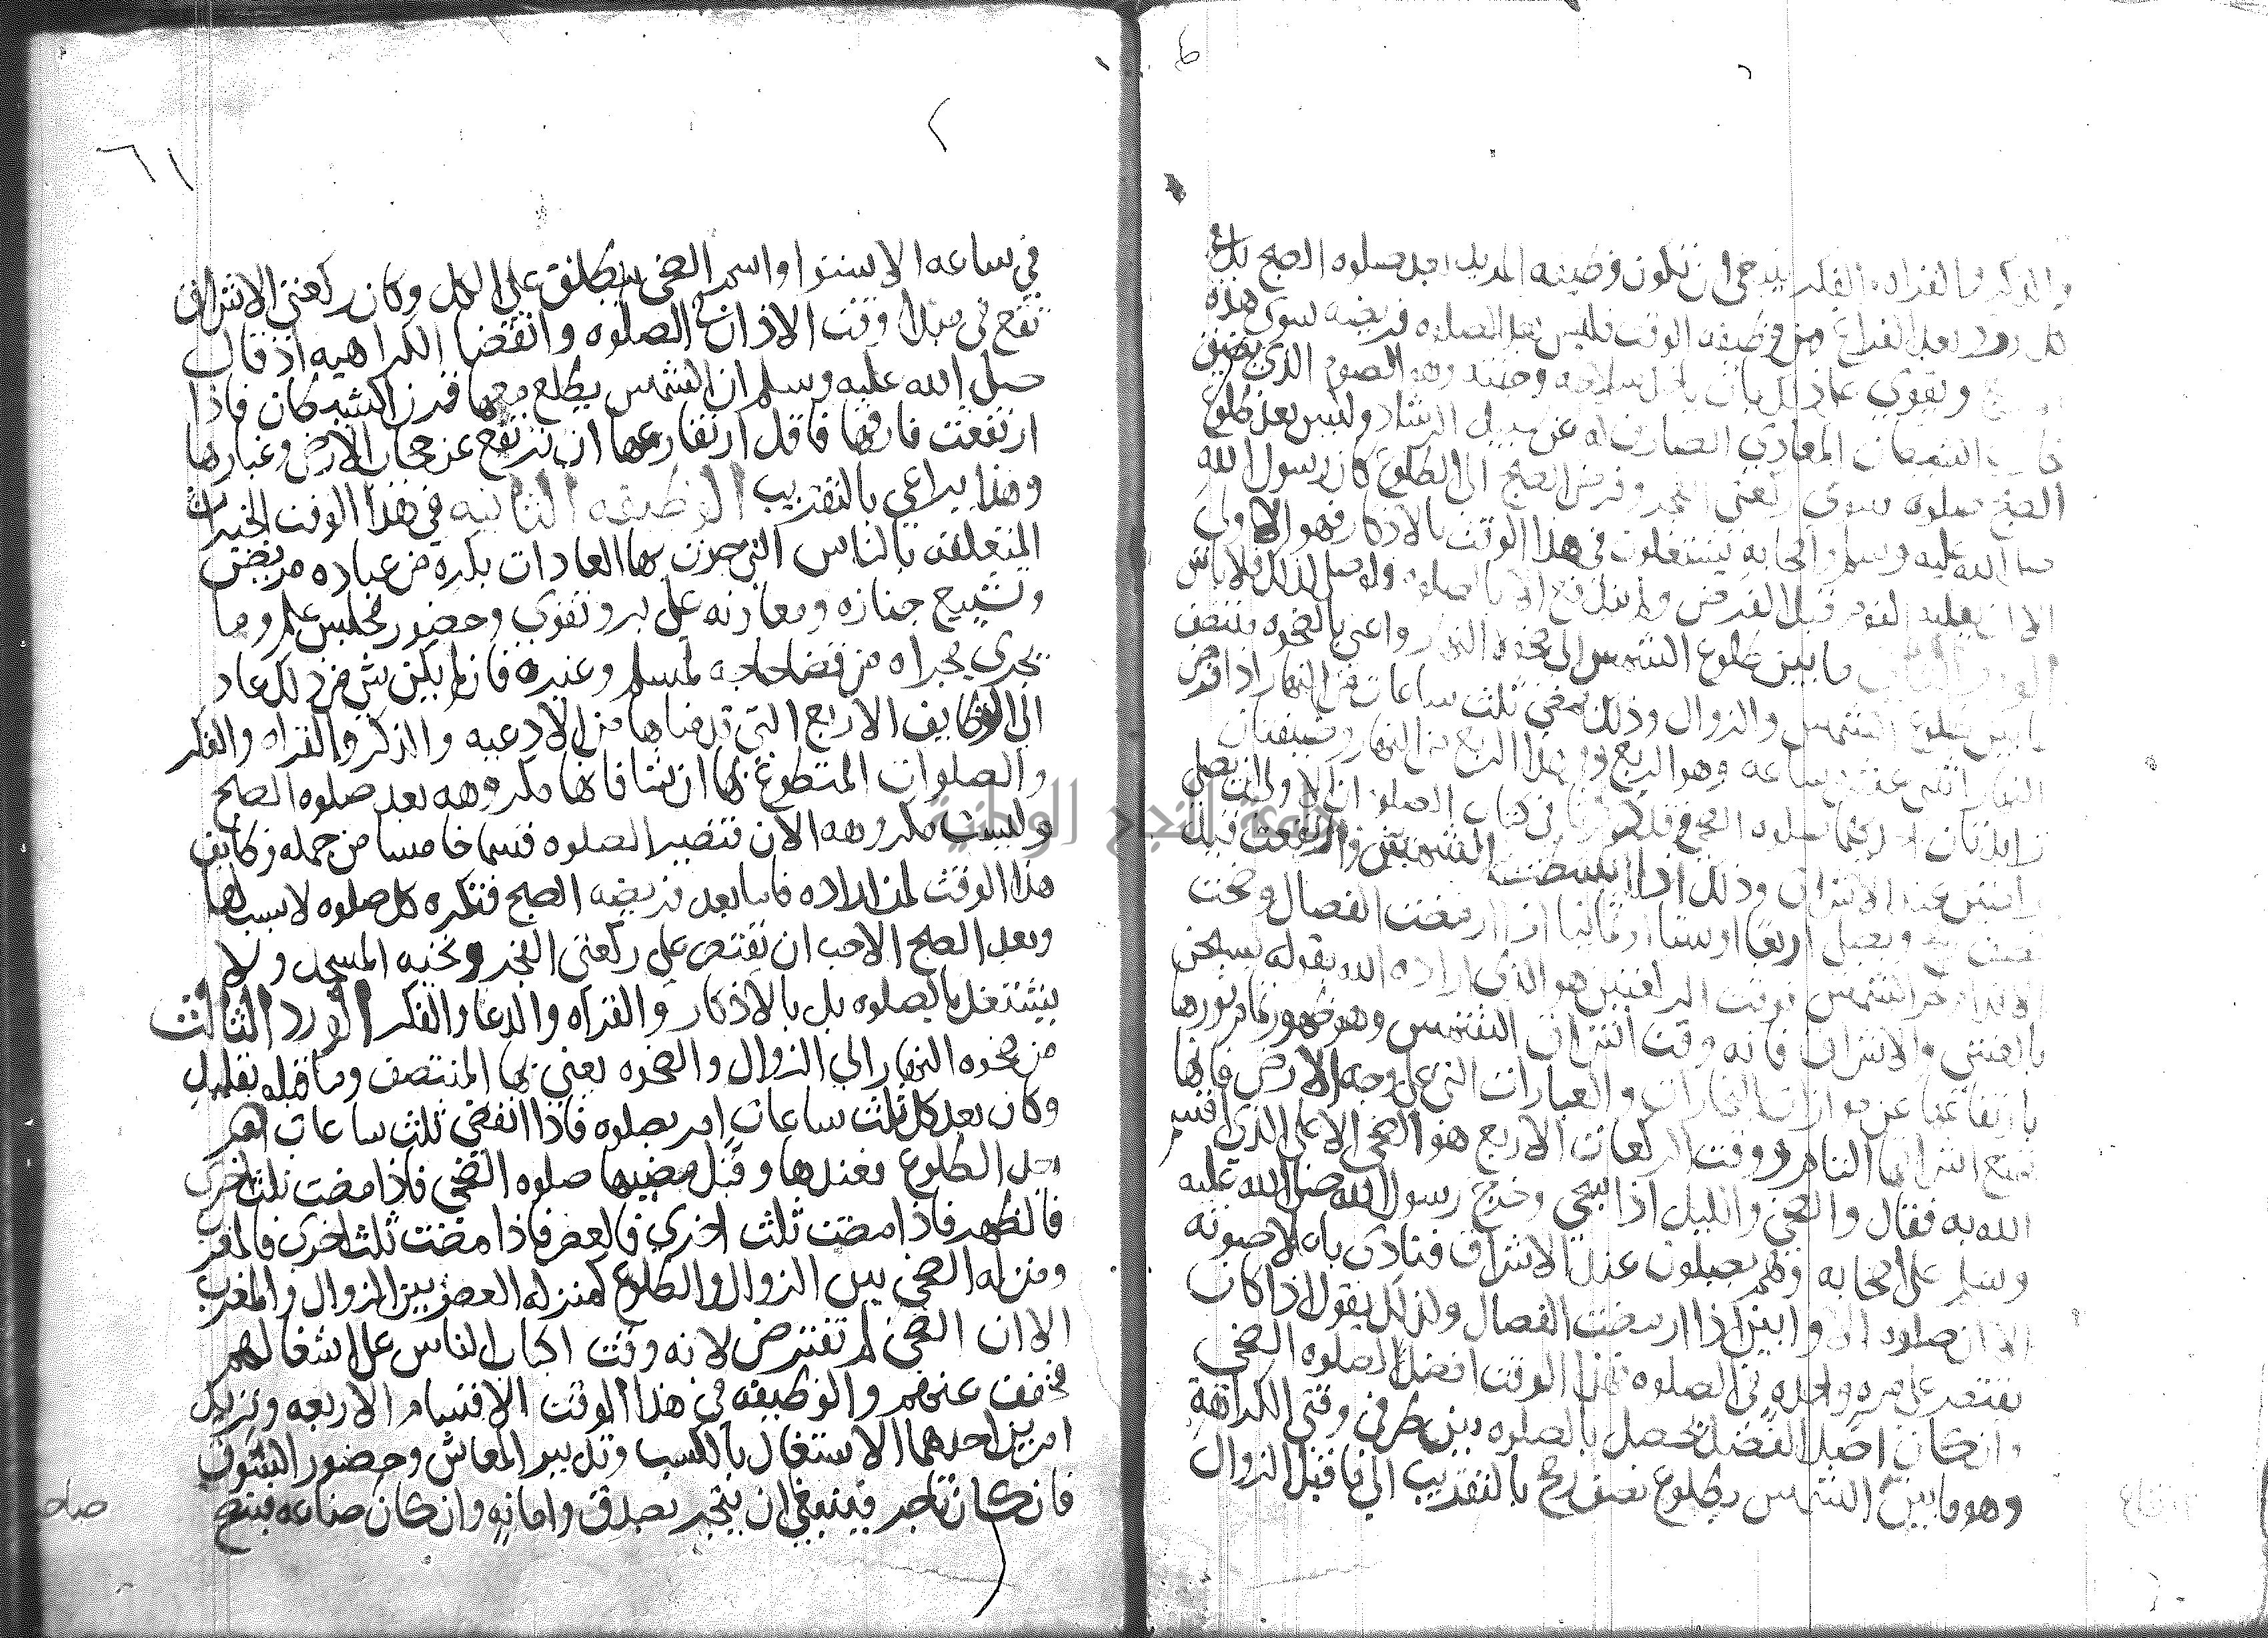 والذكر والقراه والفكر ينبغي ان تكون وظيفه المريد بعد صلوه الصبح بل في
كل ورد بعد الفراغ من وظيفه الوقت فليس بعد الصلوه فريضه سوى هذه
ويقوى على ذلك بان ياخذ سلاحه وجنته وهو الصوم الذي يضيق
مجاري الشيطان المعادي الصارف له عن سبيل الرشاد وليس بعد طلوع
الصبح صلوه سوى ركعتي الفجر وفرض الصبح الى الطلوع كان رسول الله
صلى الله عليه وسلم واصحابه يشتغلون في هذا الوقت بالاذكار فهو الاولى
الا ان يغلبه النوم قبل الفرض ولم يندفع الا بالصلوه ولو صلى لذلك فلا باس
الورد الثاني ما بين طلوع الشمس الى ضحوه النهار واعني بالضحوه منتصف
ما بين طلوع الشمس والزوال وذلك بمضي ثلث ساعات من النهار اذا فرض
النهار اثنتي عشره ساعه وهو الربع وفي هذا الربع من النهار وظيفتان
زايدتان احديهما صلوه الضحى وقد ذكرناها في كتاب الصلوه ان الاولى ان يصلي
ركعتين عند الاشراق وذلك اذا انبسطت الشمس وارتفعت قدر
نصف رمح ويصلي اربعا او ستا او ثمانيا اذا رمضت الفصال وضحيت
الاقدام بحر الشمس فوقت الركعتين هو الذي اراده الله بقوله يسبحن
بالعشي والاشراق فانه وقت اشراق الشمس وهو ظهور تمام نورها
بارتفاعها عن موازات البخارات والغبارات التي على وجه الارض فانها
تمنع اشراقها التام ووقت الركعات الاربع هو الضحى الاعلى الذي اقسم
الله به فقال والضحى والليل اذا سجى وخرج رسول الله صلى الله عليه
وسلم على اصحابه وهم يصلون عند الاشراق فنادى باعلا صوته
الا ان صلوه الاوابين اذا رمضت الفصال ولذلك يقول اذا كان
يقتصر على مره واحده في الصلوه فهذا الوقت افضل لصلوه الضحى
وان كان اصل الفضل يحصل بالصلوه بين طرفي وقتي الكراهة
وهو ما بين الشمس بطلوع نصف رمح بالتقريب الى ما قبل الزوال
في ساعه الاستوا واسم الضحى ينطلق على الكل وكان ركعتي الاشراق
تقع في مبدا وقت الاذان في الصلوه وانقضا الكراهيه اذ قال
صلى الله عليه وسلم ان الشمس يطلع معها قرن الشيطان فاذا
ارتفعت فارقها فاقل ارتفاعها ان ترتفع عن بخار الارض وغبارها
وهذا يراعي بالتقريب الوظيفه الثانيه في هذا الوقت الخيرات
المتعلقه بالناس التي جرت بها العادات بكرة من عياده مريض
وتشييع جنازه ومعاونه على بر وتقوى وحضور مجلس علم وما
يجري مجراه من قضا حاجه لمسلم وغيره فان لم يكن شي من ذلك عاد
الى الوظايف الاربع التي قدمناها من الادعيه والذكر والقراه والفكر
والصلوات المتطوع بها ان شا فانها مكروهه بعد صلوه الصبح
وليست مكروهه الان فتصير الصلوه قسما خامسا من جمله وظايف
هذا الوقت لمن اراده فاما بعد فريضه الصبح فتكره كل صلوه لا سبب لها
وبعد الصبح الاحب ان يقتصر على ركعتي الفجر وتحيه المسجد ولا
يشتغل بالصلوه بل بالاذكار والقراه والدعا والفكر الورد الثالث
من ضحوه النهار الى الزوال والضحوه يعني بها المنتصف وما قبله بقليل
وكان بعد كل ثلث ساعات امر بصلوه فاذا انقضى ثلث ساعات
بعد الطلوع فعندها وقبل مضيها صلوه الضحى فاذا مضت ثلث اخرى
فالظهر فاذا مضت ثلث اخرى فالعصر فاذا مضت ثلث اخرى فالمغرب
ومنزله الضحى بين الزوال والطلوع كمنزله العصر بين الزوال والمغرب
الا ان الضحى لم تفترض لانه وقت اكباب الناس على اشغالهم
فخفف عنهم والوظيفه في هذا الوقت الاقسام الاربعه ونزيد
امرين احدهما الاشتغال بالكسب وتدبير المعاش وحضور السوق
فان كان تاجر فينبغي ان يتجر بصدق وامانه وان كان صناعه فينصح